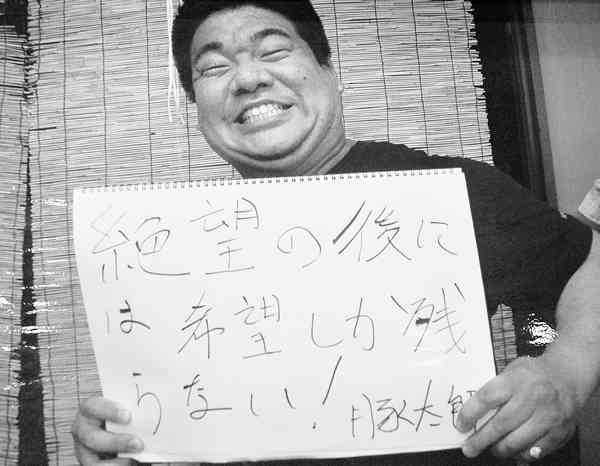 絶望の後に
は希望しか残
らない! 豚太郎